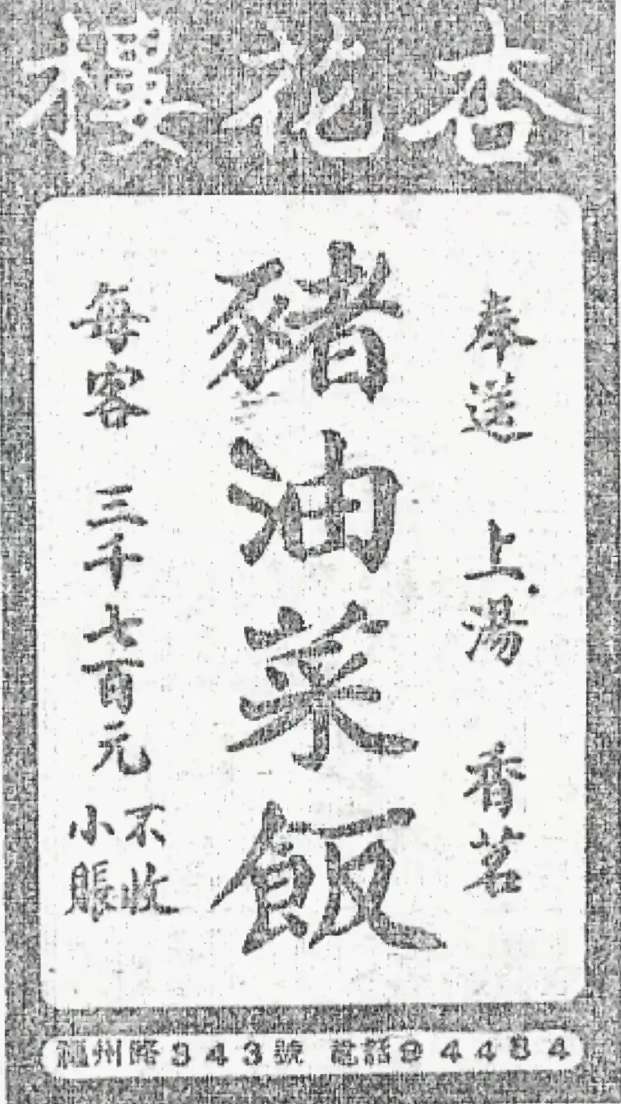 杏花樓
奉送 上湯 香茗
豬油菜飯
每客 三千七百元 不收小賬
福州路343號 電話94484